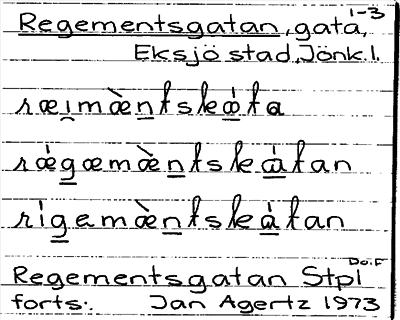 1-3
Regementsgatan, gata,
Eksjö stad, Jönk.l.
ræi̯mæ̀n̲tskɑ̲̀ta
rǽg̲æmæ̀n̲tskɑ̲̀tan
rìg̲emæ̀n̲tskɑ̲̀tan
Do:F
Regementsgatan Stpl
forts:. Jan Agertz 1973